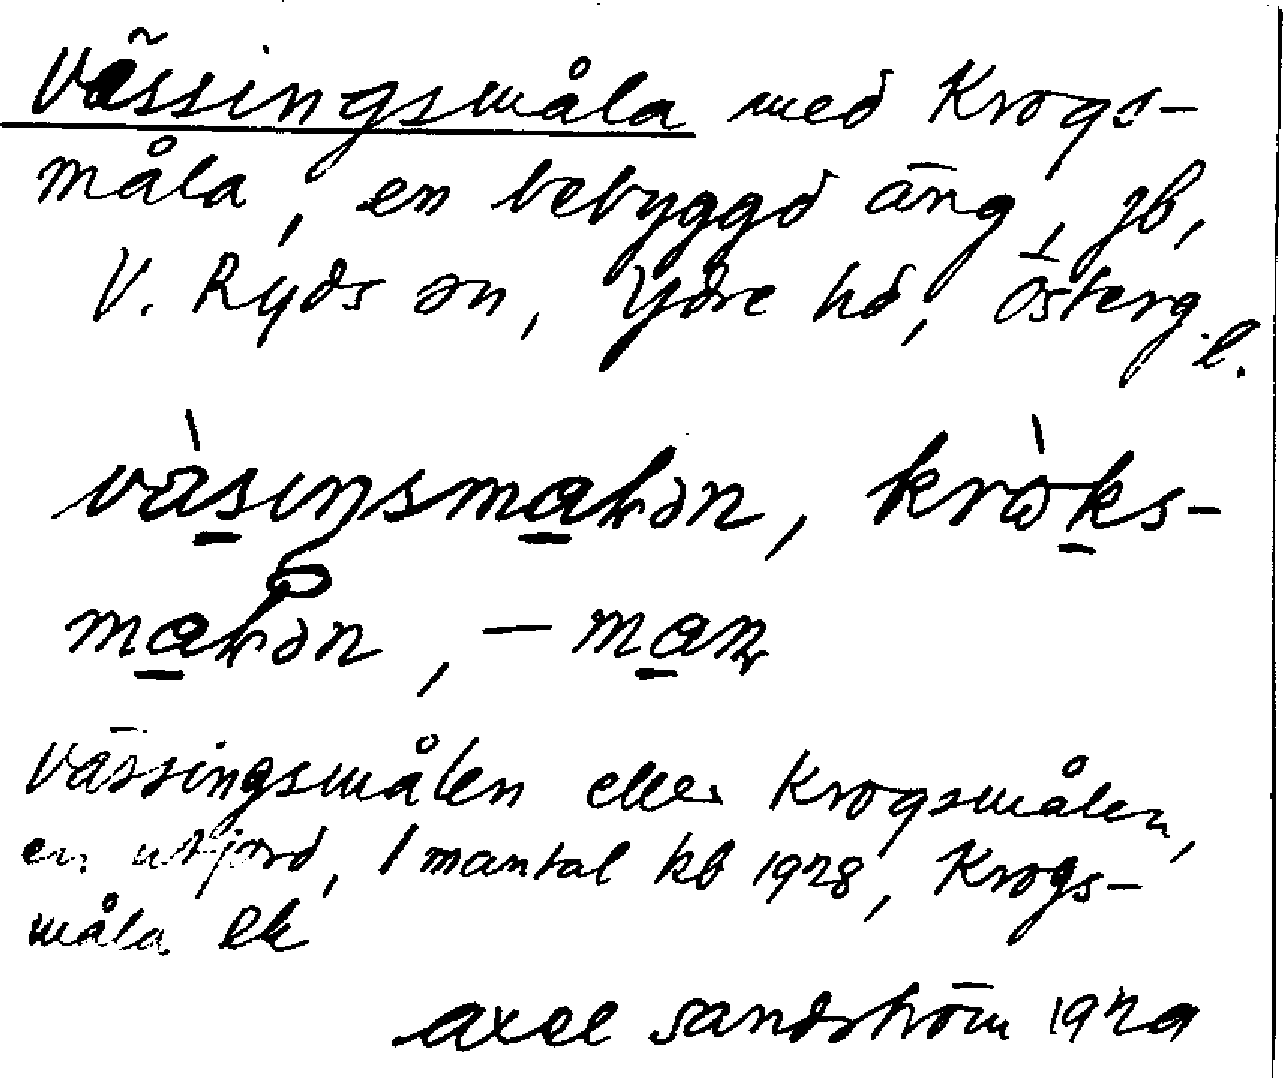 Vässingsmåla med Krogs-
måla, en bebyggd äng, jb,
V. Ryds sn, Ydre hd, Österg.l.
Vässingsmålen eller Krogsmålen,
en utjord, 1 mantal kb 1928, Krogs-
måla ek
Axel Sandström 1929